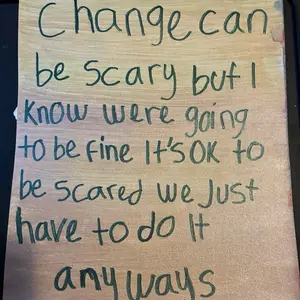 Change can
be scary but I
know were going
to be fine It's OK to
be scared we Just
have to do It
anyways